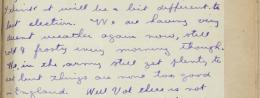 it will be a bit different to
last election. We are having very
decent weather again now, still
cold & frosty every morning though.
We in the army still get plenty to
eat but things are none too good
in England. Well Vot there is not